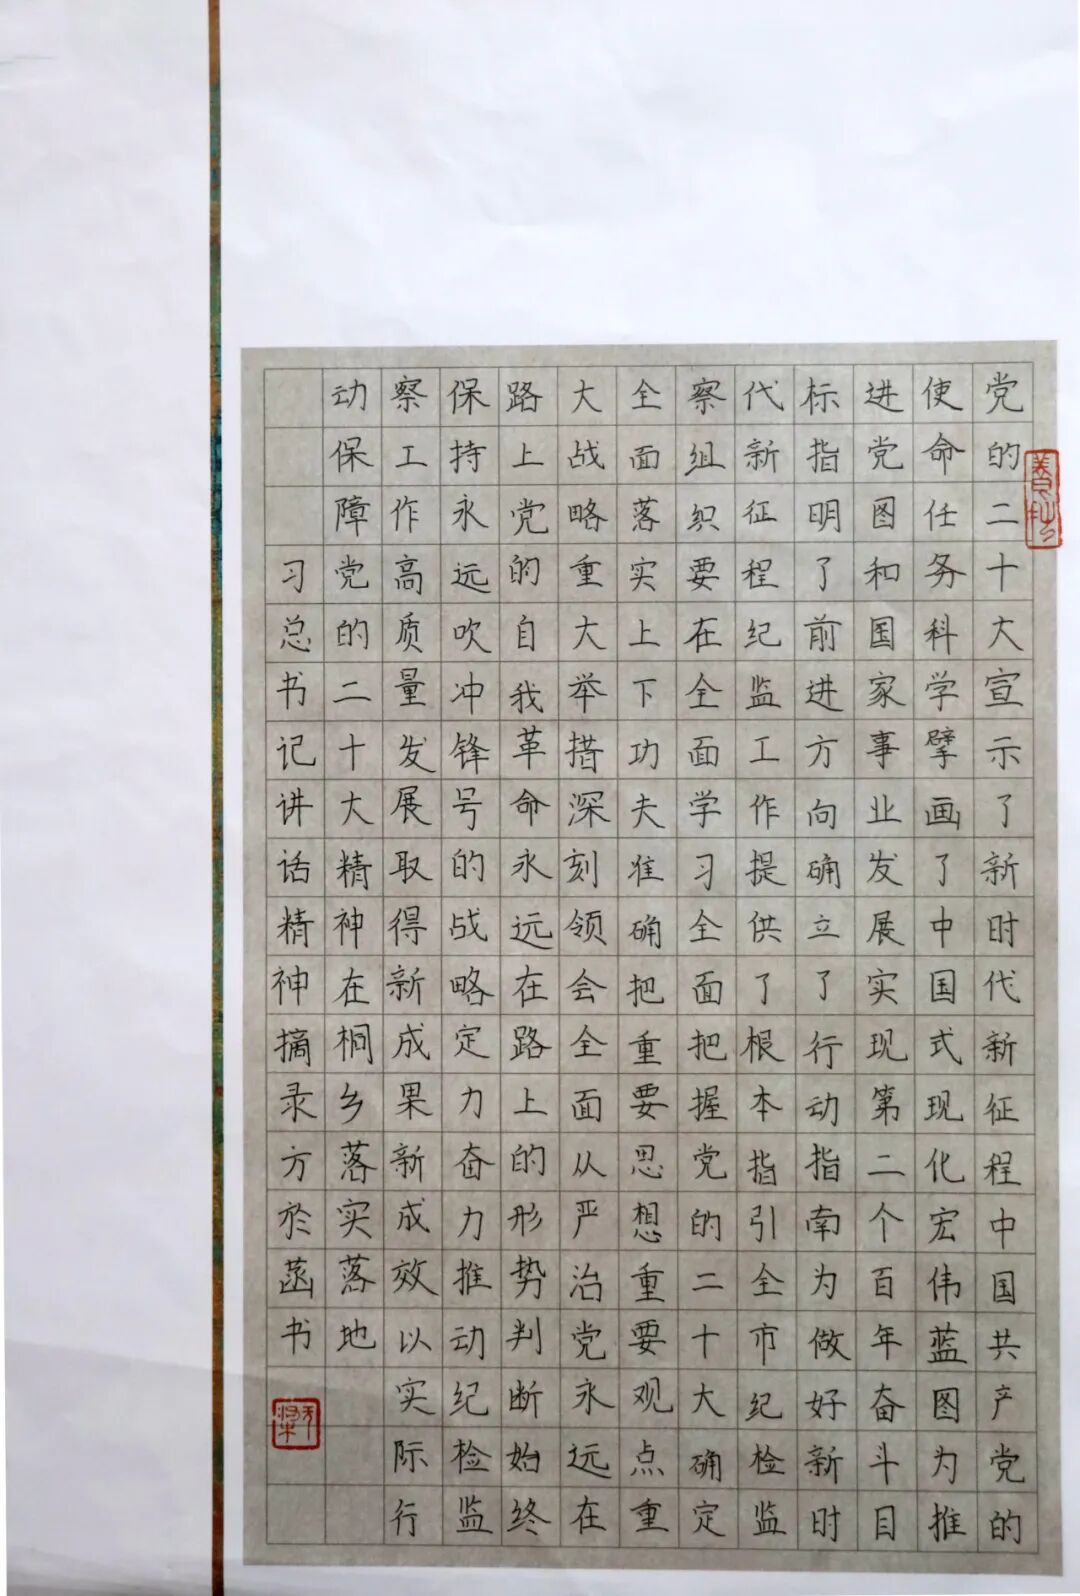 党的二十大宣示了新时代新征程中国共产党的
使命任务科学擘画了中国式现代化宏伟蓝图为推
进党图和国家事业发展实现第二个百年奋斗目
标指明了前进方向确立了行动指南为做好新时
代新征程纪监工作提供了根本指引全市纪检监
察组织要在全面学习全面把握党的二十大确定
全面落实上下功夫准确把重要思想重要观点重
大战略重大举措深刻领会全面从严治党永远在
路上党的自我革命永远在路上的形势判断始终
保持永远吹冲锋号的战略定力奋力推动纪检监
察工作高质量发展取得新成果新成效以实际行
动保障党的二十大精神在桐乡落实落地
习总书记讲话精神摘录方於菡书